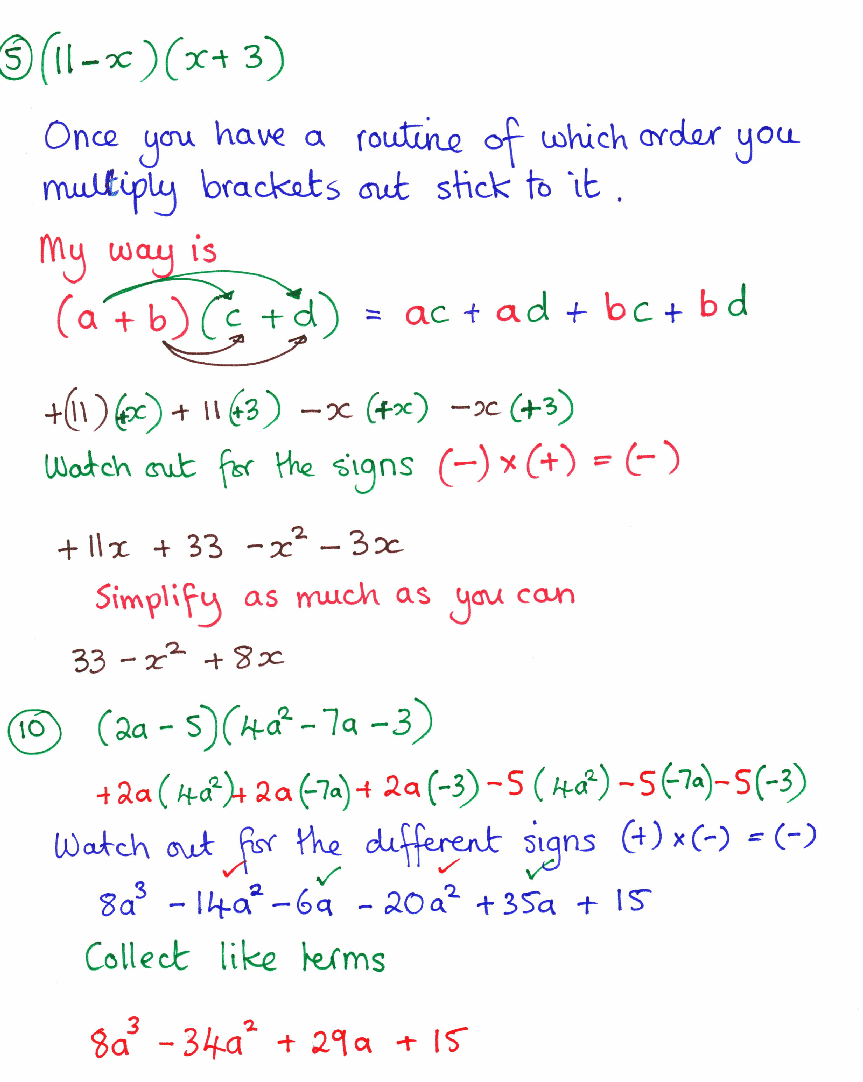 ⑤ (11 - x)(x + 3)
Once you have a routine of which order you
multiply brackets out stick to it.
My way is
(a + b)(c + d) = ac + ad + bc + bd
+(11)(+x) + 11(+3) - x(+x) - x(+3)
Watch out for the signs (-) × (+) = (-)
+11x + 33 - x² - 3x
Simplify as much as you can
33 - x² + 8x
⑩ (2a - 5)(4a² - 7a - 3)
+2a(4a²) + 2a(-7a) + 2a(-3) - 5(4a²) - 5(-7a) - 5(-3)
Watch out for the different signs (+) × (-) = (-)
8a³ - 14a² - 6a - 20a² + 35a + 15
Collect like terms
8a³ - 34a² + 29a + 15